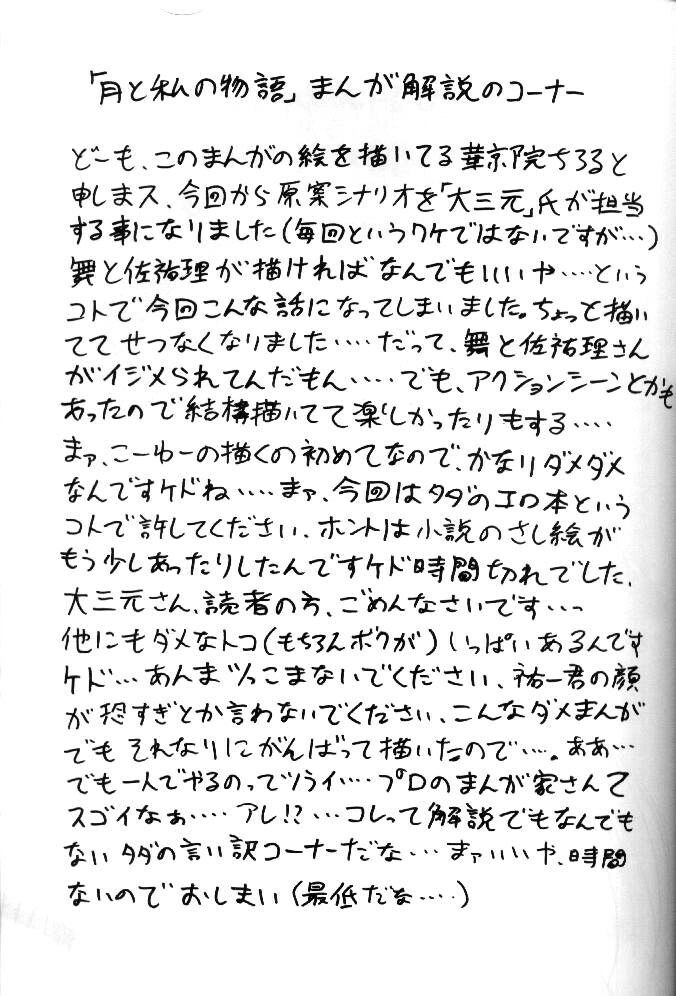 「月と私の物語」まんが解説のコーナー
どーも、このまんがの絵を描いてる華京院ちろると
申しまス、今回から原案シナリオを「大三元」氏が担当
する事になりました(毎回というワケではないですが…)
舞と佐祐理が描ければなんでもいいや……という
コトで今回こんな話になってしまいました。ちょっと描い
ててせつなくなりました……だって、舞と佐祐理さん
がイジメられてんだもん……でも、アクションシーンとかも
あったので結構描いてて楽しかったりもする……
まァ、こーゆーの描くの初めてなので、かなりダメダメ
なんですケドね……まァ、今回はタダのエロ本という
コトで許してください、ホントは小説のさし絵が
もう少しあったりしたんですケド時間切れでした、
大三元さん、読者の方、ごめんなさいです…っ
他にもダメなトコ(もちろんボクが)いっぱいあるんです
ケド…あんまツっこまないでください、祐一君の顔
が恐すぎとか言わないでください、こんなダメまんが
でもそれなりにがんばって描いたので……ああ…
でも一人でやるのってツライ…プロのまんが家さんて
スゴイなぁ……アレ!?…コレって解説でもなんでも
ないタダの言い訳コーナーだな…まァいいや、時間
ないのでおしまい(最低だな……)